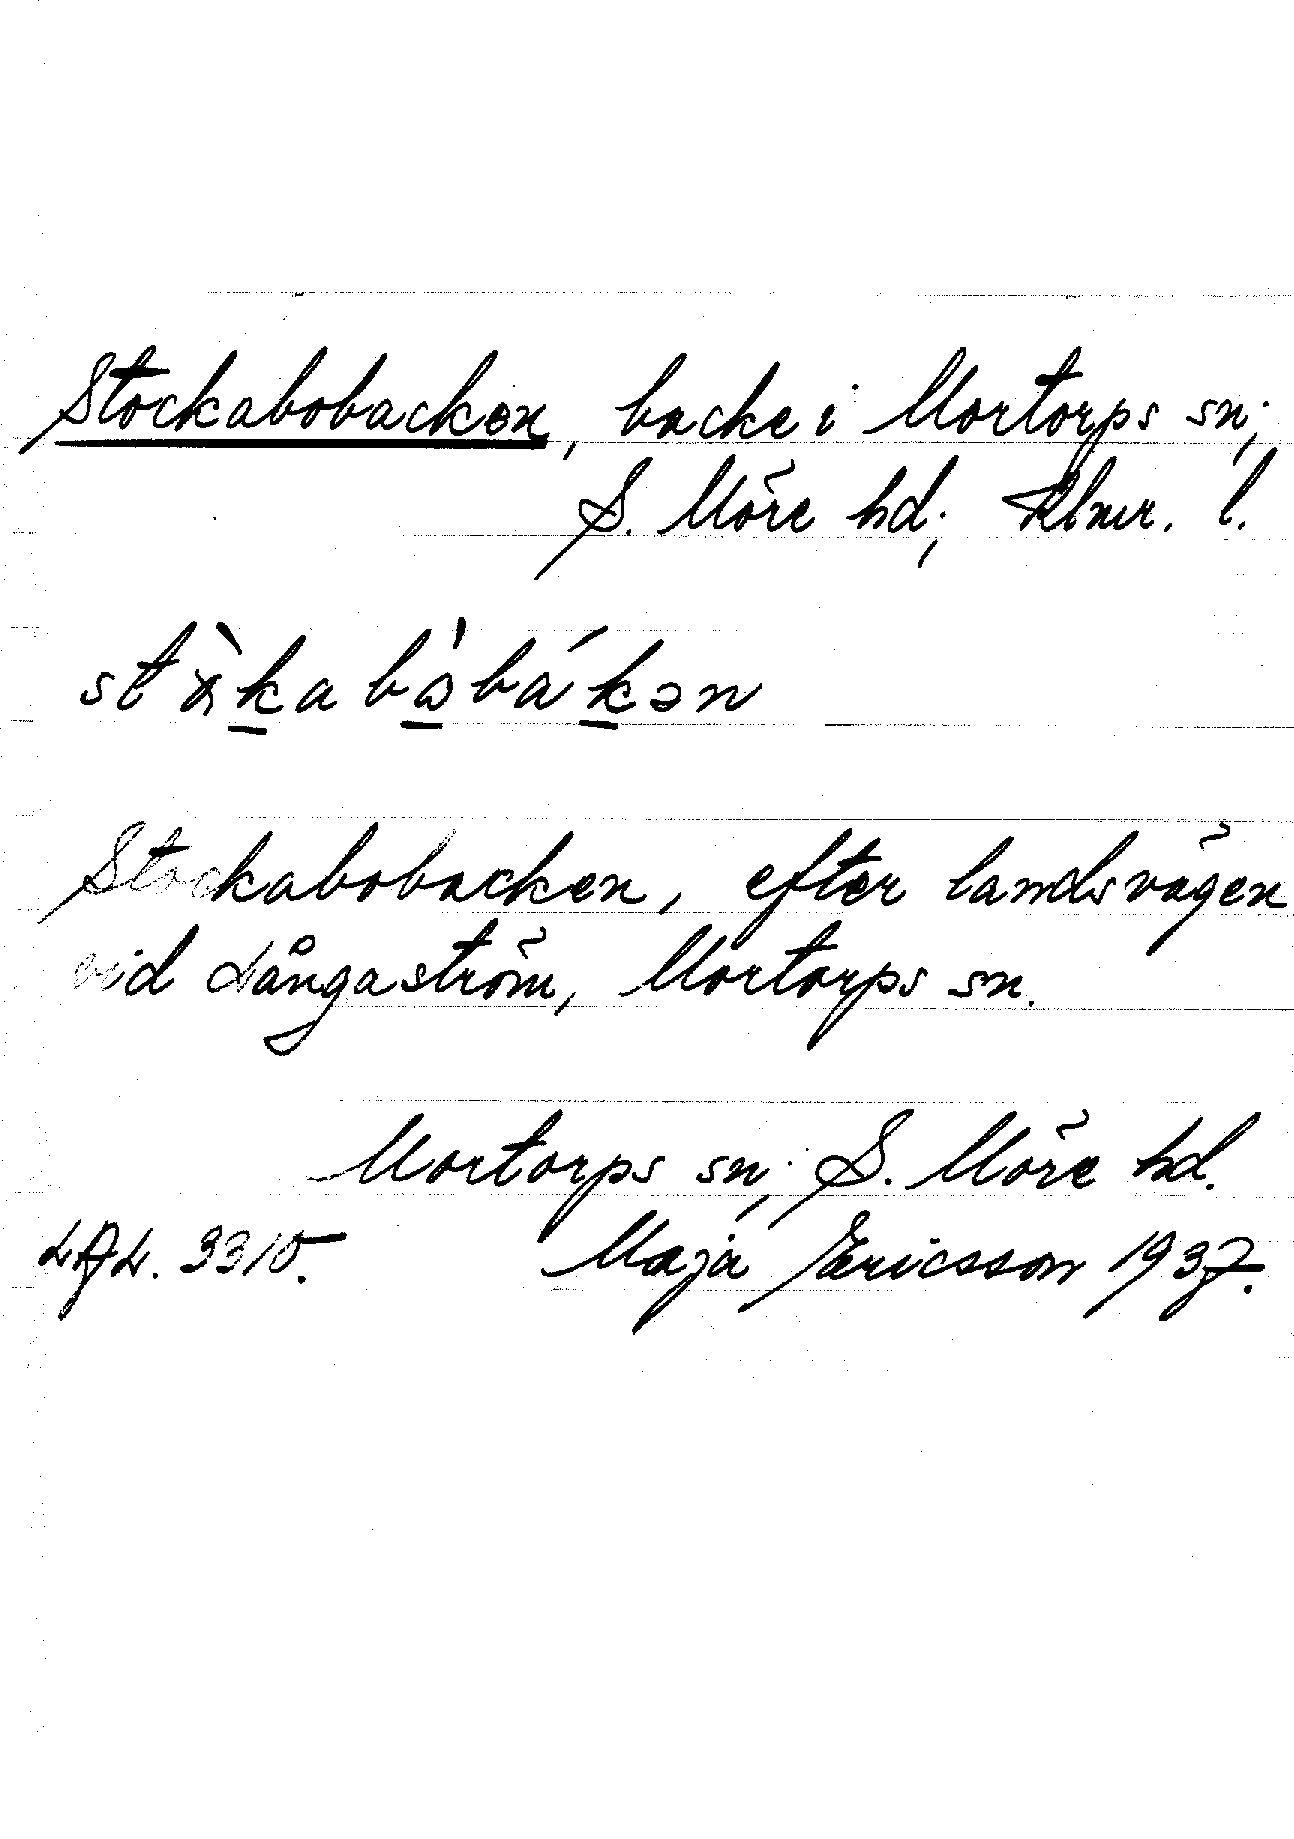 Stockabobacken, backe i Mortorps sn;
S. Möre hd; Klmr. l.
Stockabobacken, efter landsvägen
vid Långaström, Mortorps sn.
Mortorps sn; S. Möre hd.
LAL. 3310. Maja Ericsson 1937.